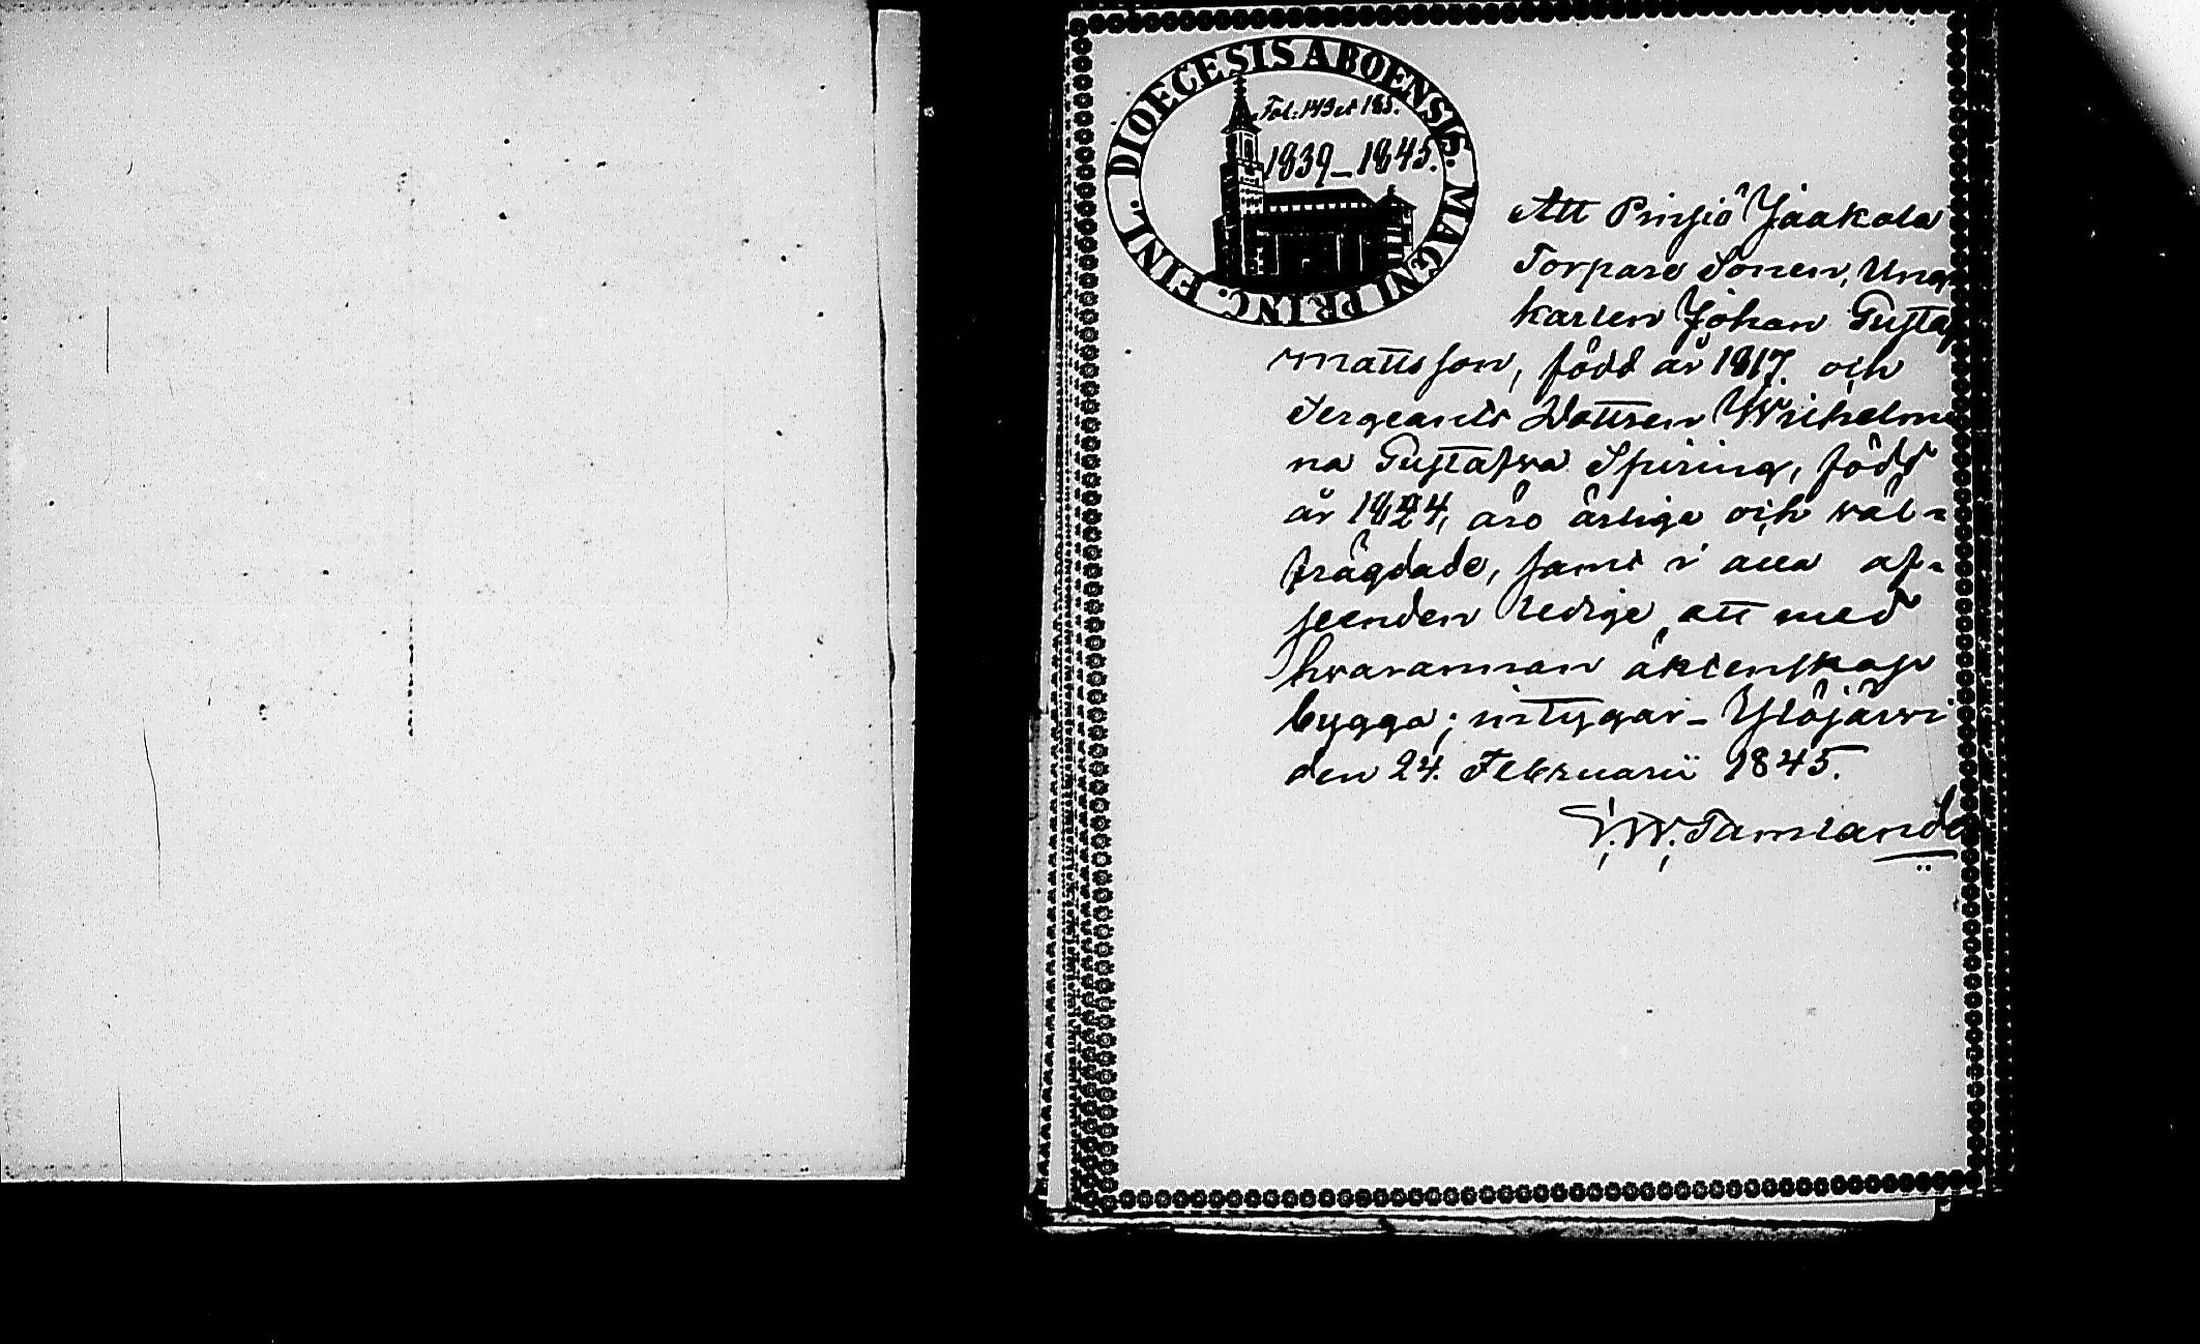 DIOECESIS ABOENSIS. MAGNI PRINC. FINL.
Fol: 149 et 185.
1839–1845.
Att Pinsiö Jaakola
Torpare Sonen, Ung
karlen Johan Gustaf
Mattsson, född år 1817. och
Sergeants Dottren Wilhelmi
na Gustafva Spiring, född
år 1824, äro ärlige och väl-
frägdade, samt i alla af-
seenden ledige, att med
hvarannan äktenskap
bygga; intygar – Ylöjärvi
den 24. Februarii 1845.
Tamlande